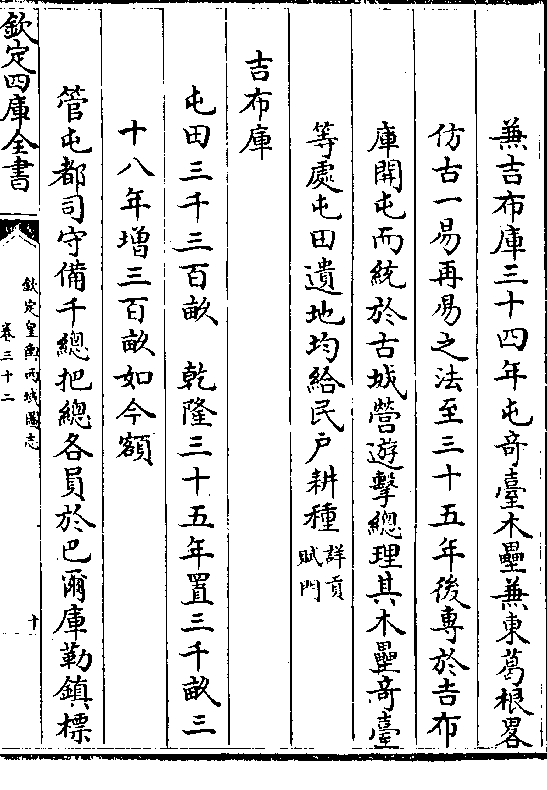 兼吉布庫三十四年屯竒臺木壘兼東葛根畧
仿古一易再易之法至三十五年後專於吉布
庫開屯而統於古城營遊擊總理其木壘竒臺
等處屯田遺地均給民户耕種詳貢
賦門
吉布庫
屯田三千三百畝　乾隆三十五年置三千畝三
十八年增三百畝如今額
管屯都司守備千總把總各員於巴爾庫勒鎮標
欽定四庫全書
欽定皇輿西域圖志
卷三十二
十